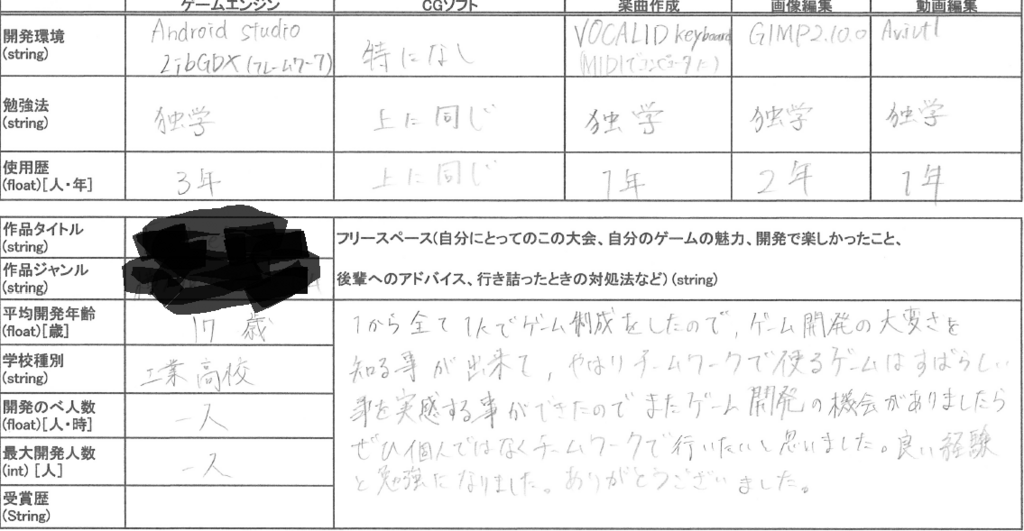 ゲームエンジン CGソフト 楽曲作成 画像編集 動画編集
開発環境
(string)
Android studio
libGDX(フレームワーク)
特になし
VOCALOID keyboard
(MIDIでコンピュータに)
GIMP2.10.0
Aviutl
勉強法
(string)
独学 上に同じ 独学 独学 独学
使用歴
(float)[人・年]
3年 上に同じ 1年 2年 1年
作品タイトル
(string)
作品ジャンル
(string)
フリースペース(自分にとってのこの大会、自分のゲームの魅力、開発で楽しかったこと、
後輩へのアドバイス、行き詰ったときの対処法など)(string)
平均開発年齢
(float)[歳]
17 歳
学校種別
(string)
工業高校
開発のべ人数
(float)[人・時]
一人
最大開発人数
(int) [人]
一人
受賞歴
(String)
1から全て1人でゲーム制成をしたので,ゲーム開発の大変さを
知る事が出来て,やはりチームワークで作るゲームはすばらしい
事を実感する事ができたのでまたゲーム開発の機会がありましたら
ぜひ個人ではなくチームワークで行いたいと思いました。良い経験
と勉強になりました。ありがとうございました。